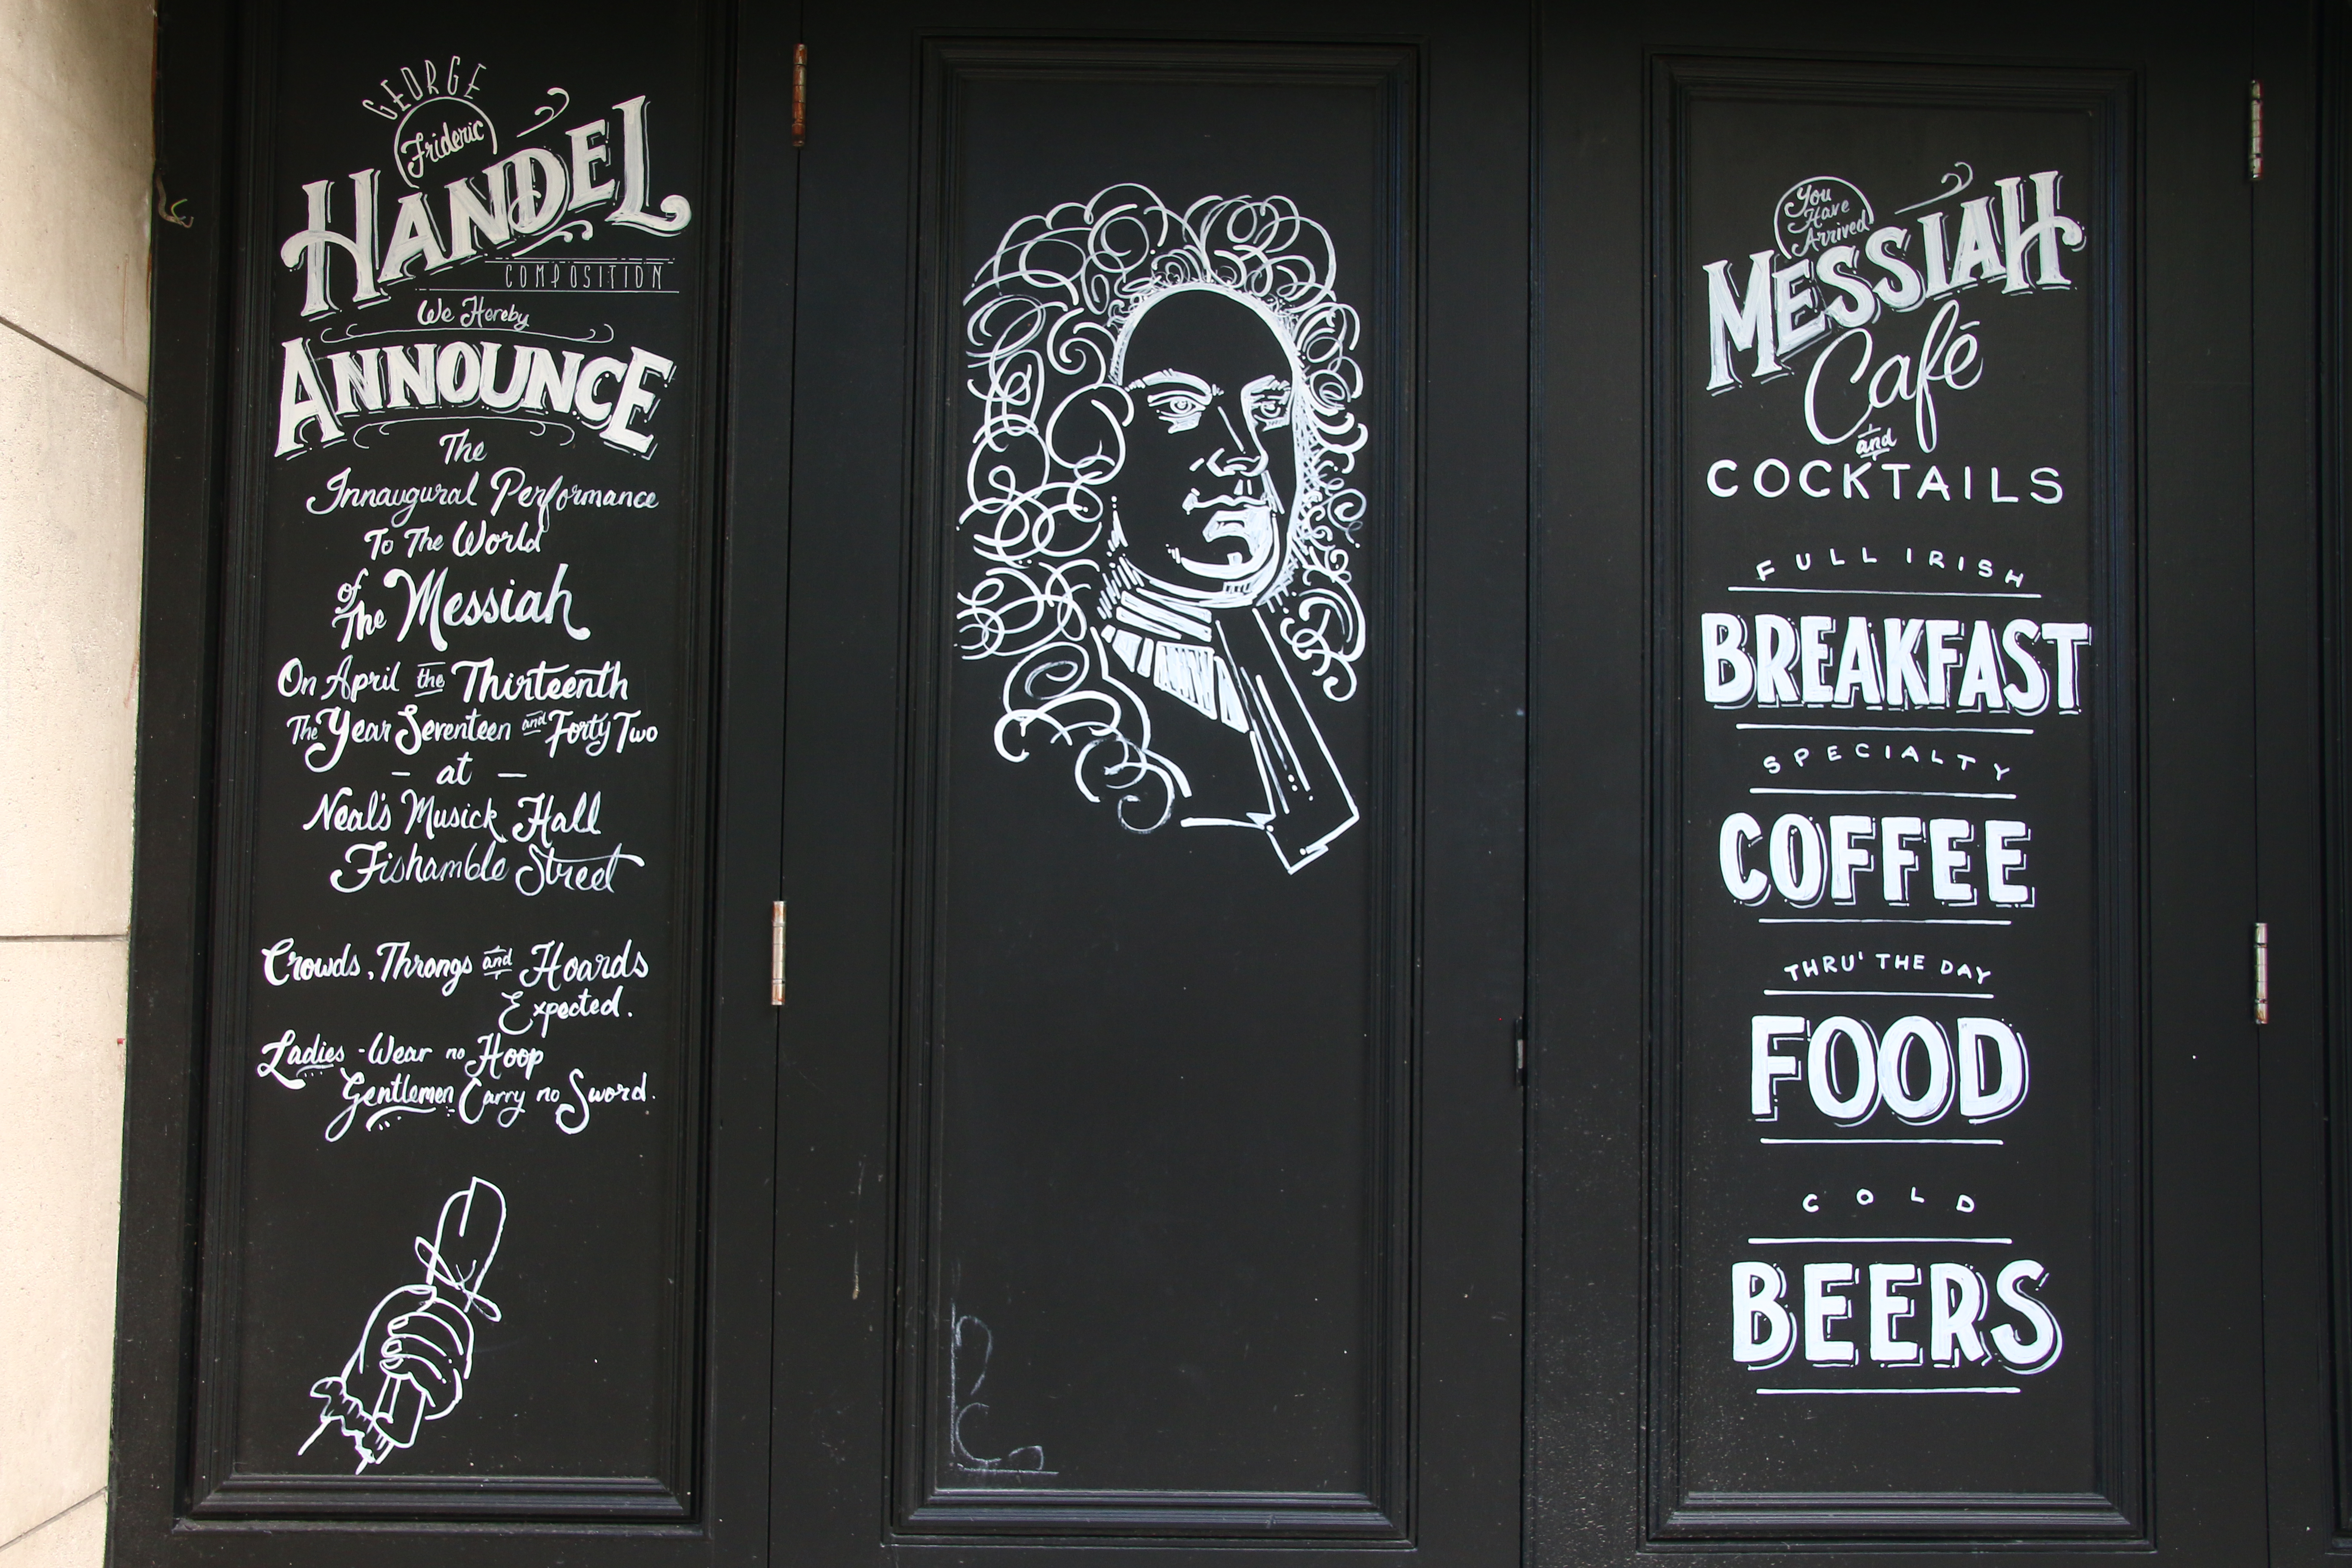 GEORGE
Frideric
HANDEL
COMPOSITION
We Hereby
ANNOUNCE
The
Innaugural Performance
To The World
of
The Messiah
On April the Thirteenth
The Year Seventeen and Forty Two
- at -
Neal's Musick Hall
Fishamble Street
Crowds, Throngs and Hoards
Expected.
Ladies - Wear no Hoop
Gentlemen Carry no Sword.
You
Have
Arrived
MESSIAH
Café
and
COCKTAILS
FULL IRISH
BREAKFAST
SPECIALTY
COFFEE
THRU' THE DAY
FOOD
COLD
BEERS